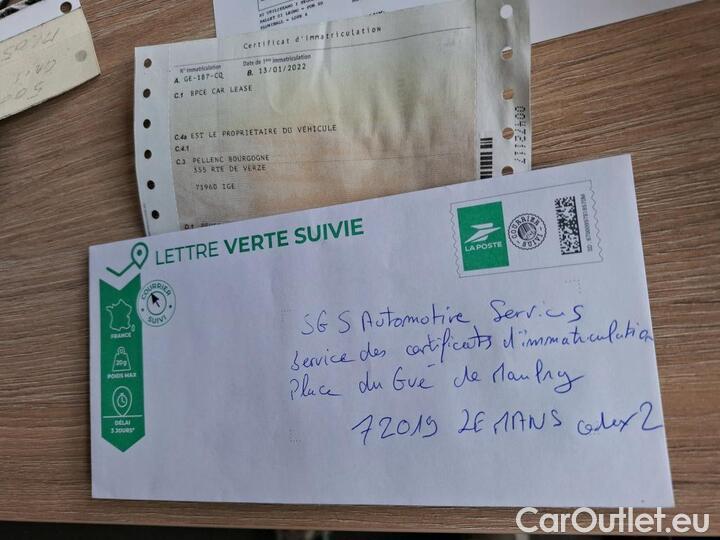 Certificat d'immatriculation
N° immatriculation Date de 1ère immatriculation
A. GE-187-CQ B. 13/01/2022
C.1 BPCE CAR LEASE
C.4a EST LE PROPRIETAIRE DU VÉHICULE
C.4.1
C.3 PELLENC BOURGOGNE
355 RTE DE VERZE
71960 IGE
LETTRE VERTE SUIVIE
LA POSTE
COURRIER SUIVI
COURRIER SUIVI
FRANCE
20g
POIDS MAX
DÉLAI
3 JOURS*
SGS Automotive Services
Service des certificats d'immatriculation
Place du Gué de Maulny
72019 LE MANS cedex 2
CarOutlet.eu